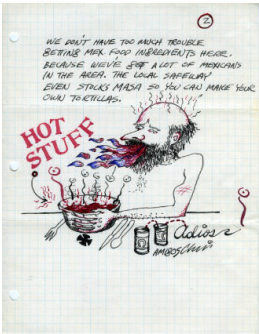 2
WE DON'T HAVE TOO MUCH TROUBLE
GETTING MEX. FOOD INGREDIENTS HERE.
BECAUSE WE'VE GOT A LOT OF MEXICANS
IN THE AREA. THE LOCAL SAFEWAY
EVEN STOCKS MASA SO YOU CAN MAKE YOUR
OWN TORTILLAS.
HOT
STUFF
adios
AMIGOS